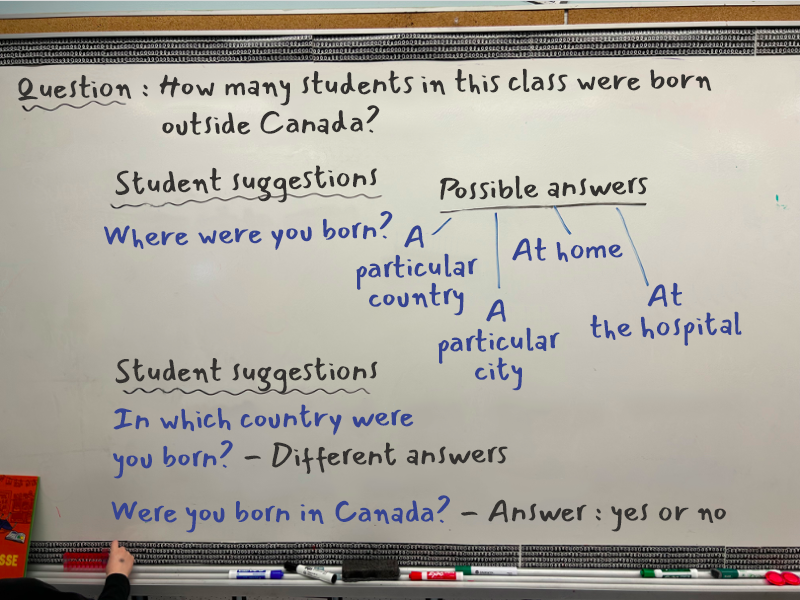 Question : How many students in this class were born
outside Canada?
Student suggestions
Possible answers
Where were you born?
A
particular
country
A
particular
city
At home
At
the hospital
Student suggestions
In which country were
you born? – Different answers
Were you born in Canada? – Answer : yes or no
SSE